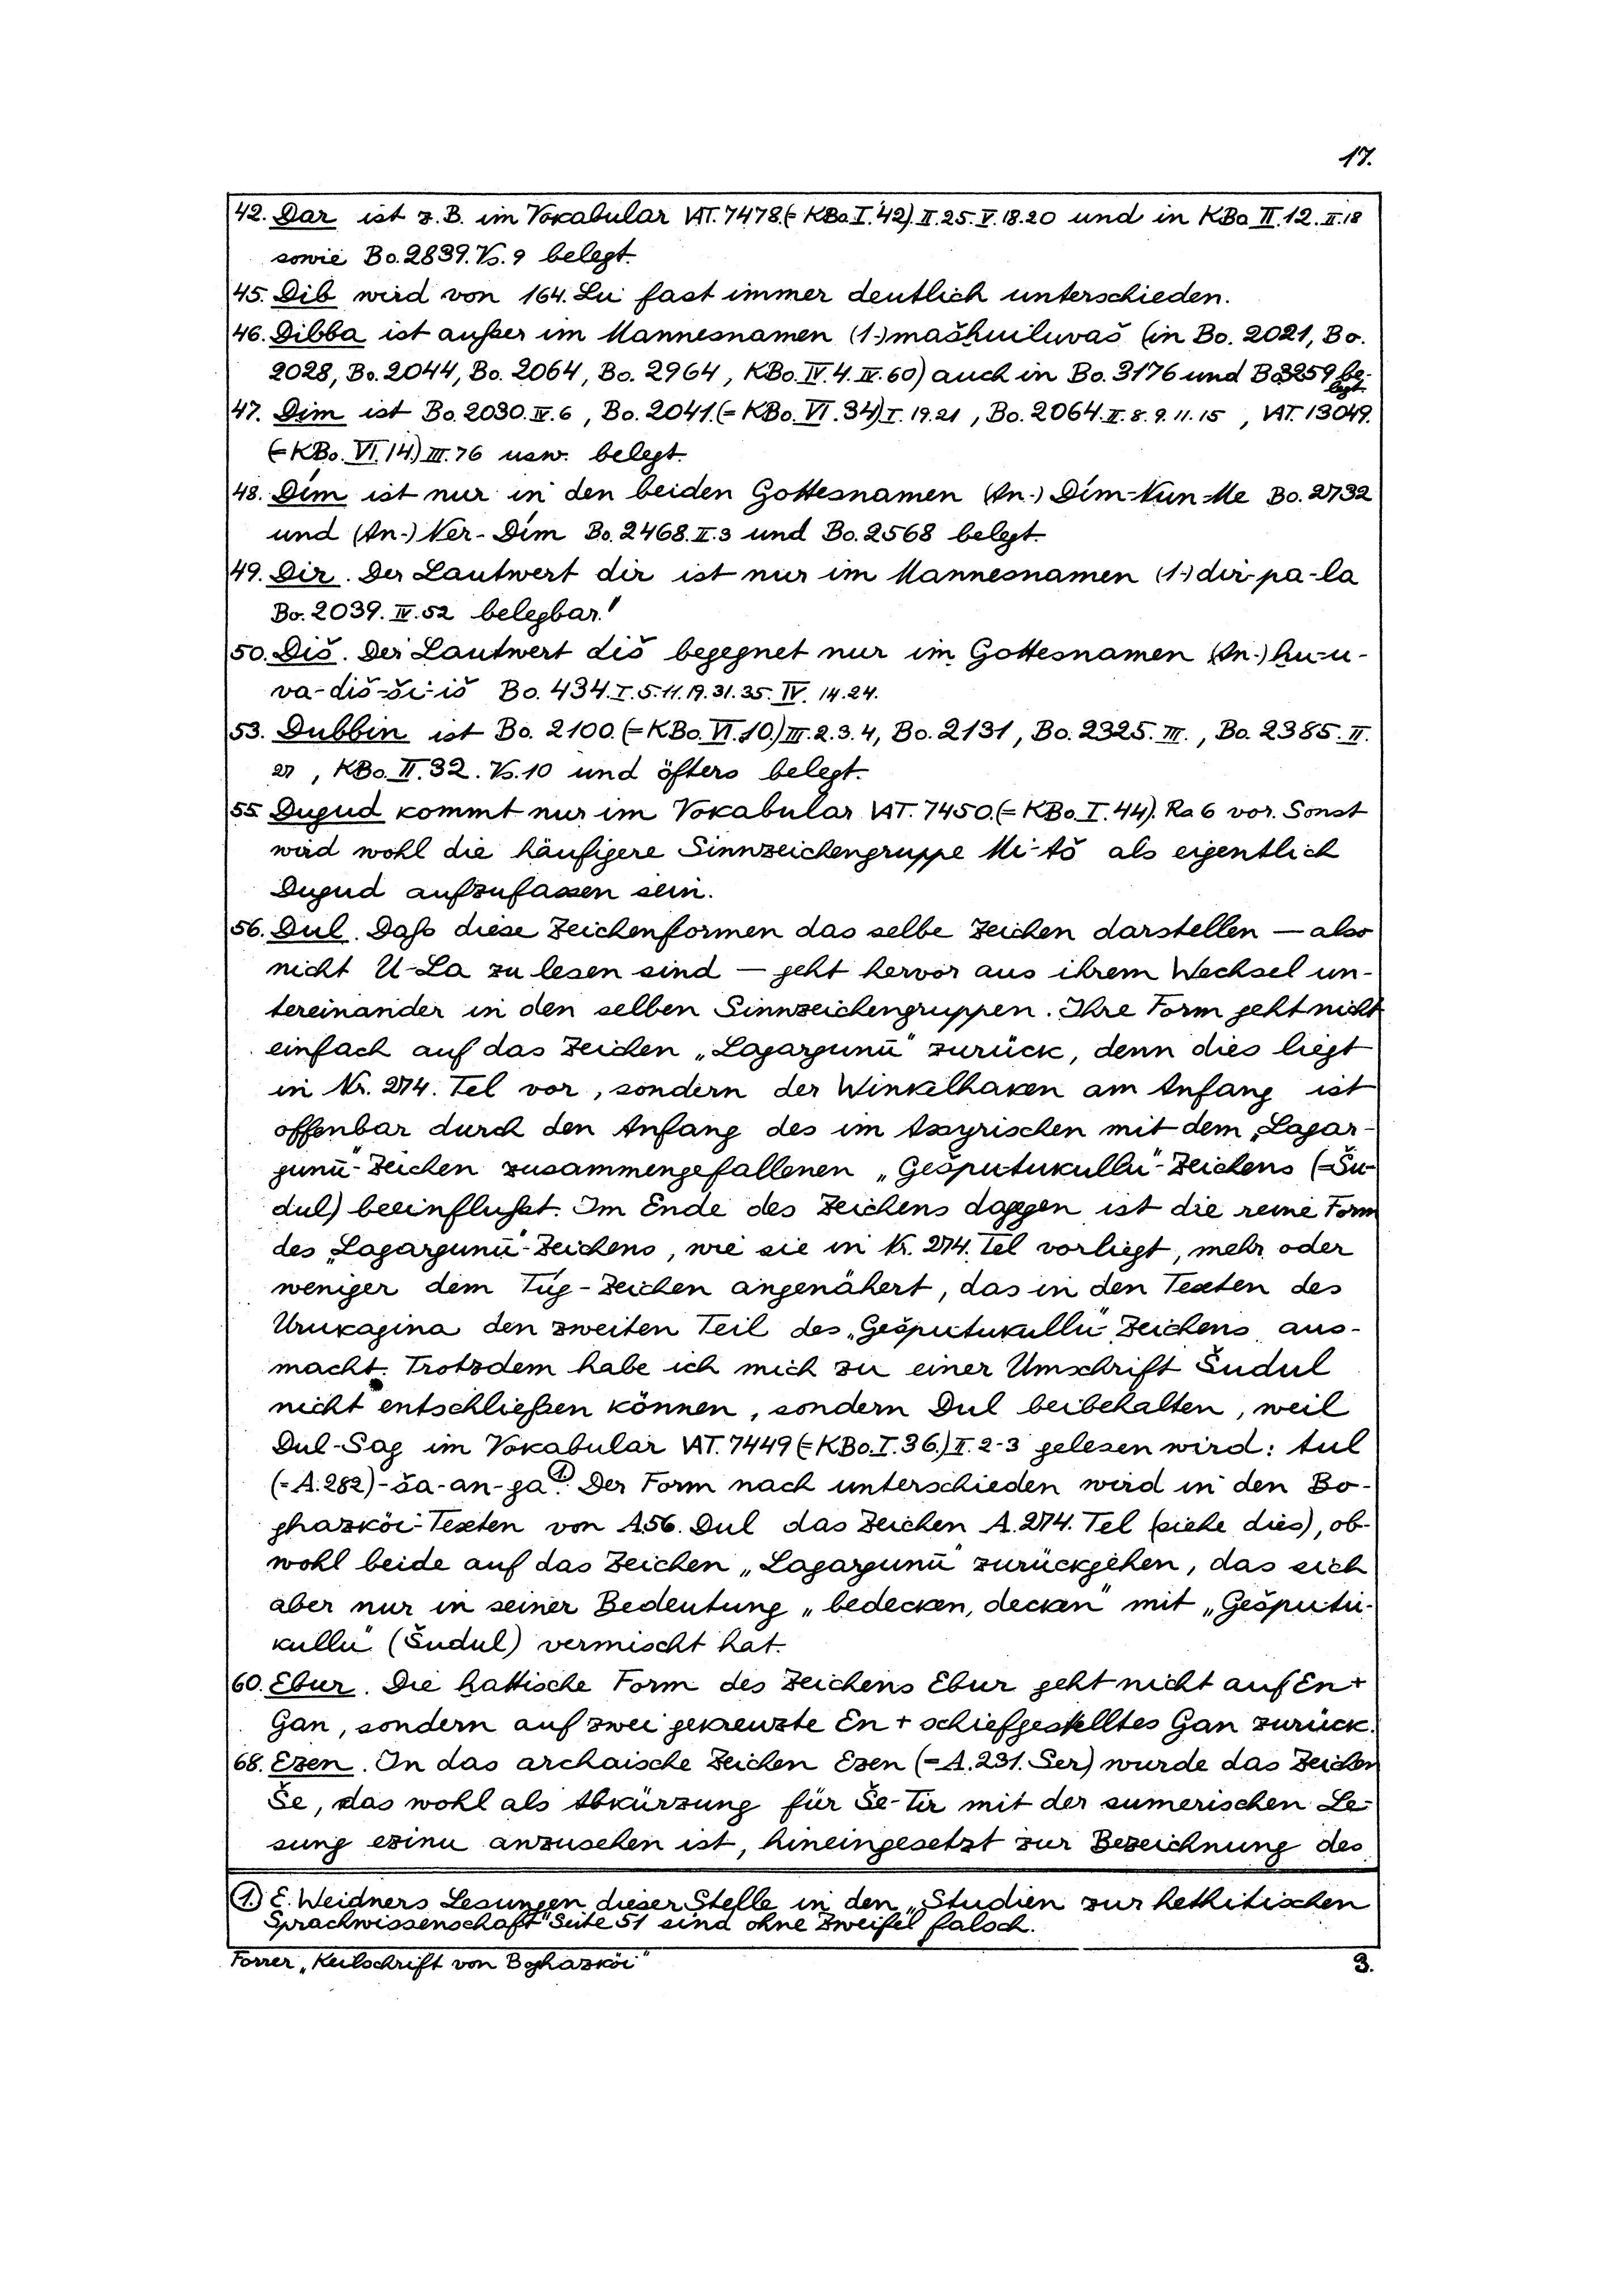 17.
42. Dar ist z. B. im Vokabular VAT. 7478.(= KBo. I. 42). II. 25. V. 18. 20 und in KBo. II. 12. II. 18
sowie Bo. 2839. Vs. 9 belegt.
45. Dib wird von 164. Lu fast immer deutlich unterschieden.
46. Dibba ist außer im Mannesnamen (1.-) mašhuiluvaš (in Bo. 2021, Bo.
2028, Bo. 2044, Bo. 2064, Bo. 2964, KBo. IV. 4. IV. 60) auch in Bo. 3176 und Bo. 3259 be-
legt.
47. Dim ist Bo. 2030. IV. 6, Bo. 2041.(= KBo. VI. 34) I. 19. 21, Bo. 2064. II. 8. 9. 11. 15, VAT. 13049.
(= KBo. VI. 14.) III. 76 usw. belegt.
48. Dím ist nur in den beiden Gottesnamen (An.-) Dím-Nun-Me Bo. 2732
und (An.-) Ner-Dím Bo. 2468. II. 3 und Bo. 2568 belegt.
49. Dir. Der Lautwert dir ist nur im Mannesnamen (1.-) dir-pa-la
Bo. 2039. IV. 52 belegbar!
50. Diš. Der Lautwert diš begegnet nur im Gottesnamen (An.-) hu-u-
va-diš-ši-iš Bo. 434. I. 5. 11. 19. 31. 35. IV. 14. 24.
53. Dubbin ist Bo. 2100. (= KBo. VI. 10.) III. 2. 3. 4, Bo. 2131, Bo. 2325. III., Bo. 2385. II.
27, KBo. II. 32. Vs. 10 und öfters belegt.
55. Dugud kommt nur im Vokabular VAT. 7450.(= KBo. I. 44). Ra 6 vor. Sonst
wird wohl die häufigere Sinnzeichengruppe Mi-Aš als eigentlich
Dugud aufzufassen sein.
56. Dul. Daß diese Zeichenformen das selbe Zeichen darstellen — also
nicht U-La zu lesen sind — geht hervor aus ihrem Wechsel un-
tereinander in den selben Sinnzeichengruppen. Ihre Form geht nicht
einfach auf das Zeichen „Lagargunū" zurück, denn dies liegt
in Nr. 274. Tel vor, sondern der Winkelhaken am Anfang ist
offenbar durch den Anfang des im Assyrischen mit dem „Lagar-
gunū"-Zeichen zusammengefallenen „Gešputukullu"-Zeichens (= Šu-
dul) beeinflußt. Im Ende des Zeichens dagegen ist die reine Form
des „Lagargunū"-Zeichens, wie sie in Nr. 274. Tel vorliegt, mehr oder
weniger dem Túg-Zeichen angenähert, das in den Texten des
Urukagina den zweiten Teil des „Gešputukullu"-Zeichens aus-
macht. Trotzdem habe ich mich zu einer Umschrift Šudul
nicht entschließen können, sondern Dul beibehalten, weil
Dul-Sag im Vokabular VAT. 7449 (= KBo. I. 36.) II. 2-3 gelesen wird: tul
(= A. 282)-ša-an-ga 1). Der Form nach unterschieden wird in den Bo-
ghazköi-Texten von A56. Dul das Zeichen A. 274. Tel (siehe dies), ob-
wohl beide auf das Zeichen „Lagargunū" zurückgehen, das sich
aber nur in seiner Bedeutung „bedecken, decken" mit „Gešputu-
kullu" (Šudul) vermischt hat.
60. Ebur. Die hattische Form des Zeichens Ebur geht nicht auf En +
Gan, sondern auf zwei gekreuzte En + schiefgestelltes Gan zurück.
68. Ezen. In das archaische Zeichen Ezen (= A. 231. Ser) wurde das Zeichen
Še, das wohl als Abkürzung für Še-Tir mit der sumerischen Le-
sung ezinu anzusehen ist, hineingesetzt zur Bezeichnung des
1.) E. Weidners Lesungen dieser Stelle in den „Studien zur hethitischen
Sprachwissenschaft" Seite 51 sind ohne Zweifel falsch.
Forrer „Keilschrift von Boghazköi" 3.